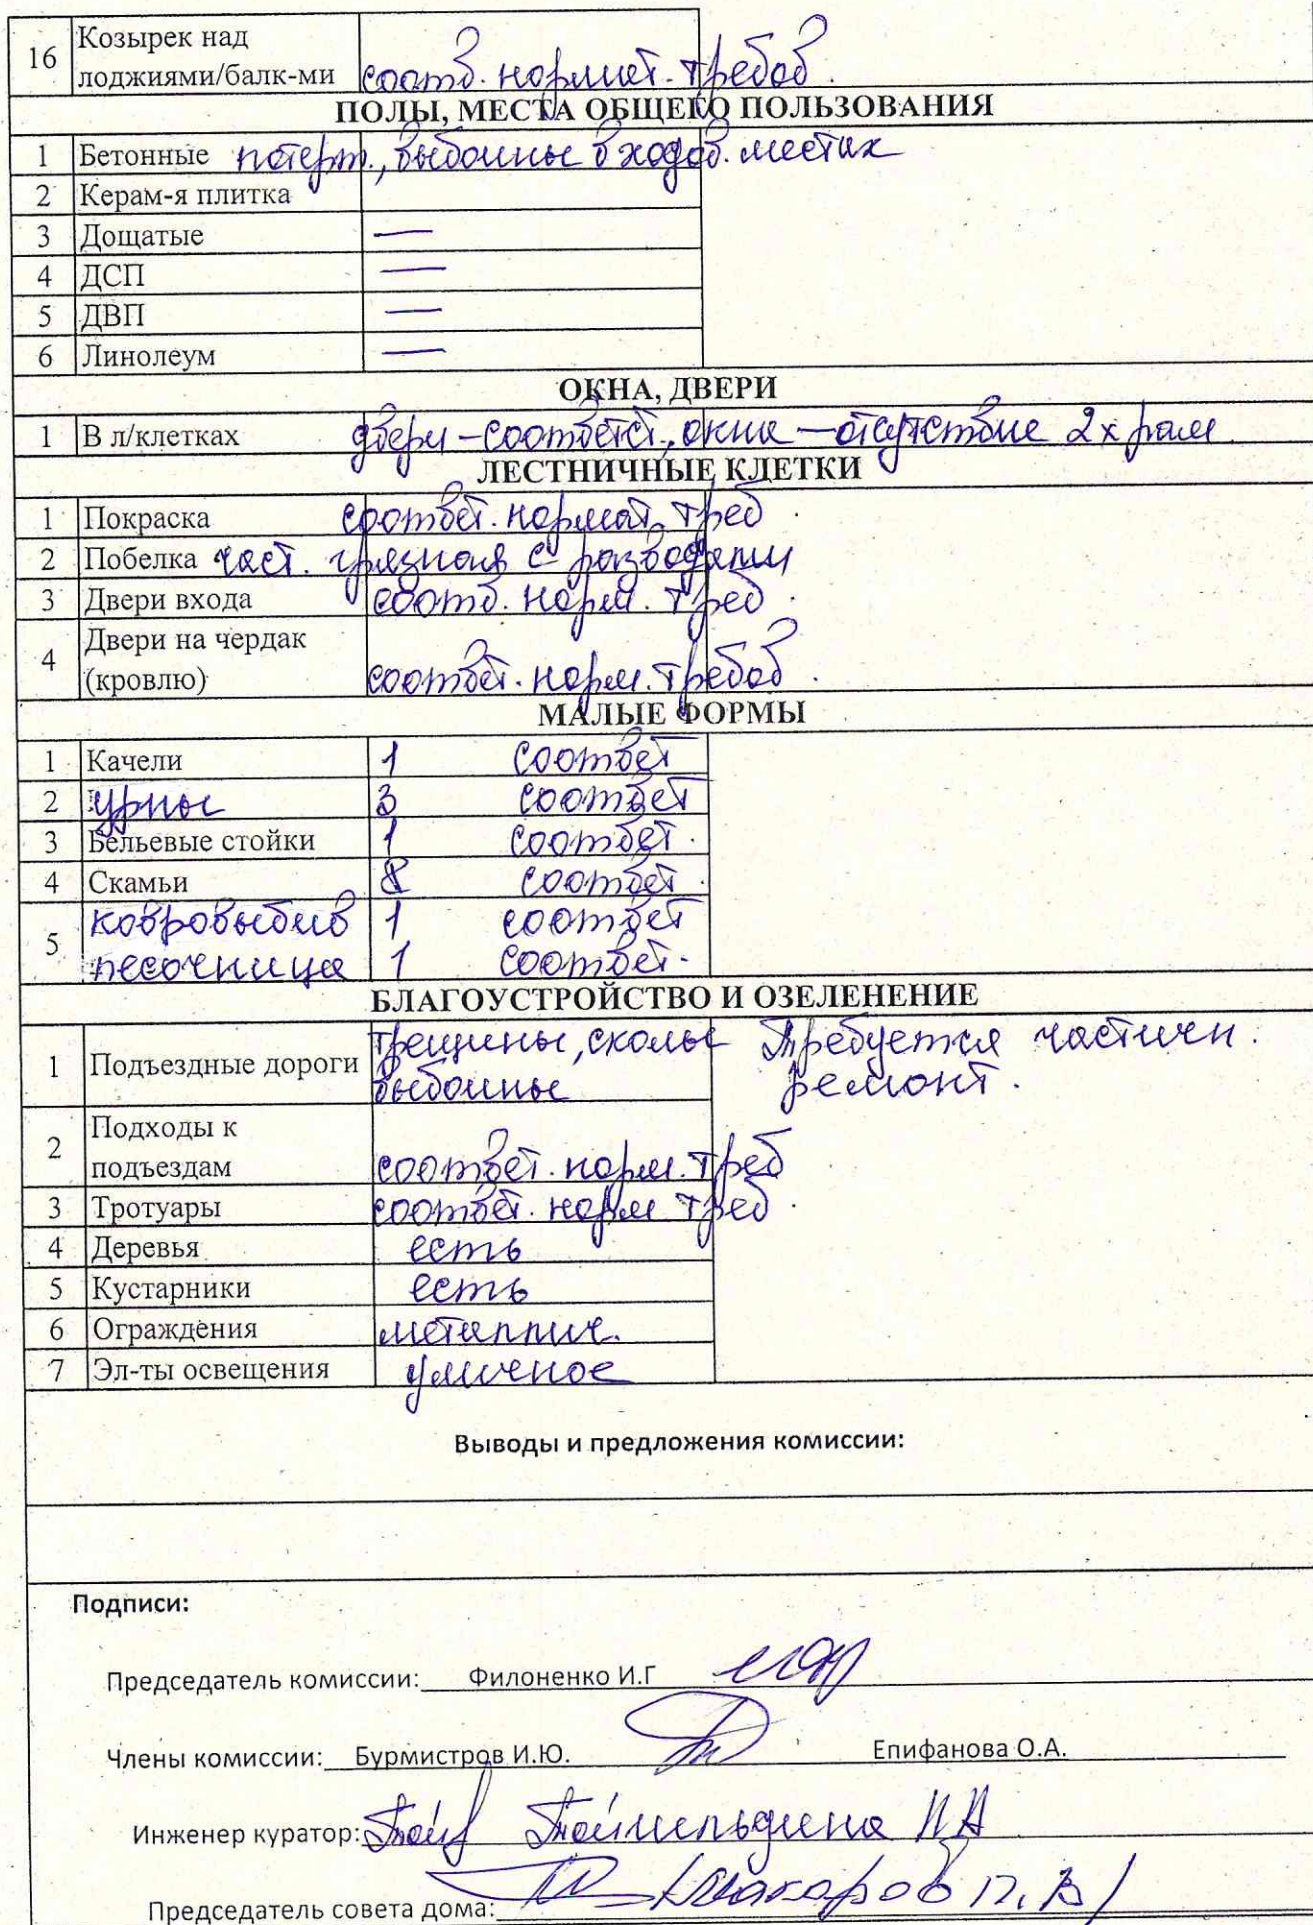 16 Козырек над
лоджиями/балк-ми соотв. нормат. требов.
ПОЛЫ, МЕСТА ОБЩЕГО ПОЛЬЗОВАНИЯ
1 Бетонные потерт., выбоины в ходов. местах
2 Керам-я плитка
3 Дощатые —
4 ДСП —
5 ДВП —
6 Линолеум —
ОКНА, ДВЕРИ
1 В л/клетках двери – соответст., окна – отсутствие 2х рам
ЛЕСТНИЧНЫЕ КЛЕТКИ
1 Покраска соответ. нормат. треб.
2 Побелка част. грязная с разводами
3 Двери входа соотв. норм. треб.
4 Двери на чердак
(кровлю) соответ. норм. требов.
МАЛЫЕ ФОРМЫ
1 Качели 1 соответ
2 урны 3 соответ
3 Бельевые стойки 1 соответ.
4 Скамьи 8 соответ.
5 ковровыбив 1 соответ
песочница 1 соответ.
БЛАГОУСТРОЙСТВО И ОЗЕЛЕНЕНИЕ
1 Подъездные дороги трещины, сколы Требуется частичн.
выбоины ремонт.
2 Подходы к
подъездам соответ. норм. треб
3 Тротуары соответ. норм треб.
4 Деревья есть
5 Кустарники есть
6 Ограждения металлич.
7 Эл-ты освещения уличное
Выводы и предложения комиссии:
Подписи:
Председатель комиссии: Филоненко И.Г
Члены комиссии: Бурмистров И.Ю. Епифанова О.А.
Инженер куратор:
Председатель совета дома: (Макаров П.В)